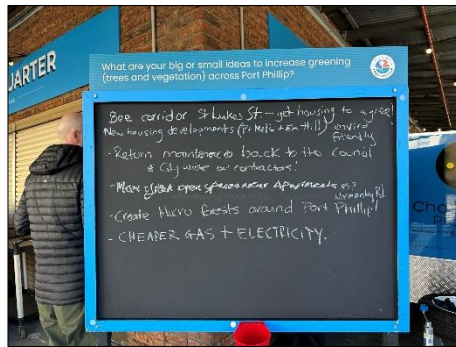 QUARTER
What are your big or small ideas to increase greening
(trees and vegetation) across Port Phillip?
Bee corridor St Lukes St - get housing to agree!
New housing developments (Pt Melb + Em Hill) enviro
friendly
- Return maintenance back to the Council
& City wide no contractors!
- More green open spaces near Apartments eg?
Normanby Rd
- Create Micro forests around Port Phillip!
- CHEAPER GAS + ELECTRICITY.
Cha
P